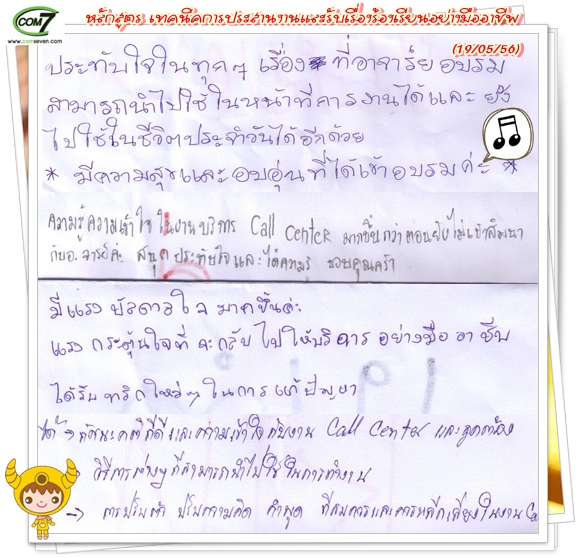 COM7
www.comseven.com
หลักสูตร เทคนิคการประสานงานและรับเรื่องร้องเรียนอย่างมืออาชีพ
(19/05/56)
ประทับใจในทุกๆ เรื่อง ที่อาจารย์อบรม
สามารถนำไปใช้ในหน้าที่การงานได้และยัง
ไปใช้ในชีวิตประจำวันได้อีกด้วย
* มีความสุขและอบอุ่นที่ได้เข้าอบรมค่ะ *
ความรู้ความเข้าใจในงานบริการ Call Center มากขึ้นกว่าตอนยังไม่เข้าสัมมนา
กับอ.จารย์ค่ะ สนุก ประทับใจและได้ความรู้ ขอบคุณคร้า
มีแรงบัลดาลใจมากขึ้นค่ะ
แรงกระตุ้นใจที่จะกลับไปให้บริการอย่างมืออาชีพ
ได้รับทริกใหม่ๆ ในการแก้ปัญหา
ได้ → ทัศนะคติที่ดีและความเข้าใจกับงาน Call Center และถูกต้อง
วิธีการต่างๆที่สามารถนำไปใช้ในการทำงาน
→ การปรับตัว ปรับความคิด คำพูด ที่สมควรและควรหลีกเลี่ยงในงาน Ca